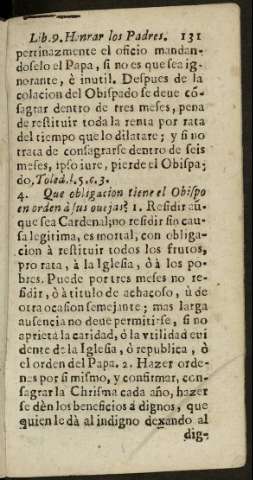 Lib.9. Honrar los Padres. 131
pertinazmente el oficio mandan-
doselo el Papa, si no es que sea ig-
norante, è inutil. Despues de la
colacion del Obispado se deue cõ-
sagrar dentro de tres meses, pena
de restituir toda la renta por rata
del tiempo que lo dilatare; y si no
trata de consagrarse dentro de seis
meses, ipso iure, pierde el Obispa-
do, Toled. l. 5. c. 3.
4. Que obligacion tiene el Obispo
en orden à sus ouejas? 1. Residir aũ-
que sea Cardenal; no residir sin cau-
sa legitima, es mortal, con obliga-
cion à restituir todos los frutos,
pro rata, à la Iglesia, ò à los po-
bres. Puede por tres meses no re-
sidir, ò à titulo de achacoso, ù de
otra ocasion semejante; mas larga
ausencia no deue permitirse, si no
aprieta la caridad, ò la vtilidad eui
dente de la Iglesia, ò republica, ò
el orden del Papa. 2. Hazer orde-
nes por si mismo, y confirmar, con-
sagrar la Chrisma cada año, hazer
se dèn los beneficios à dignos, que
quien le dà al indigno dexando al
dig-